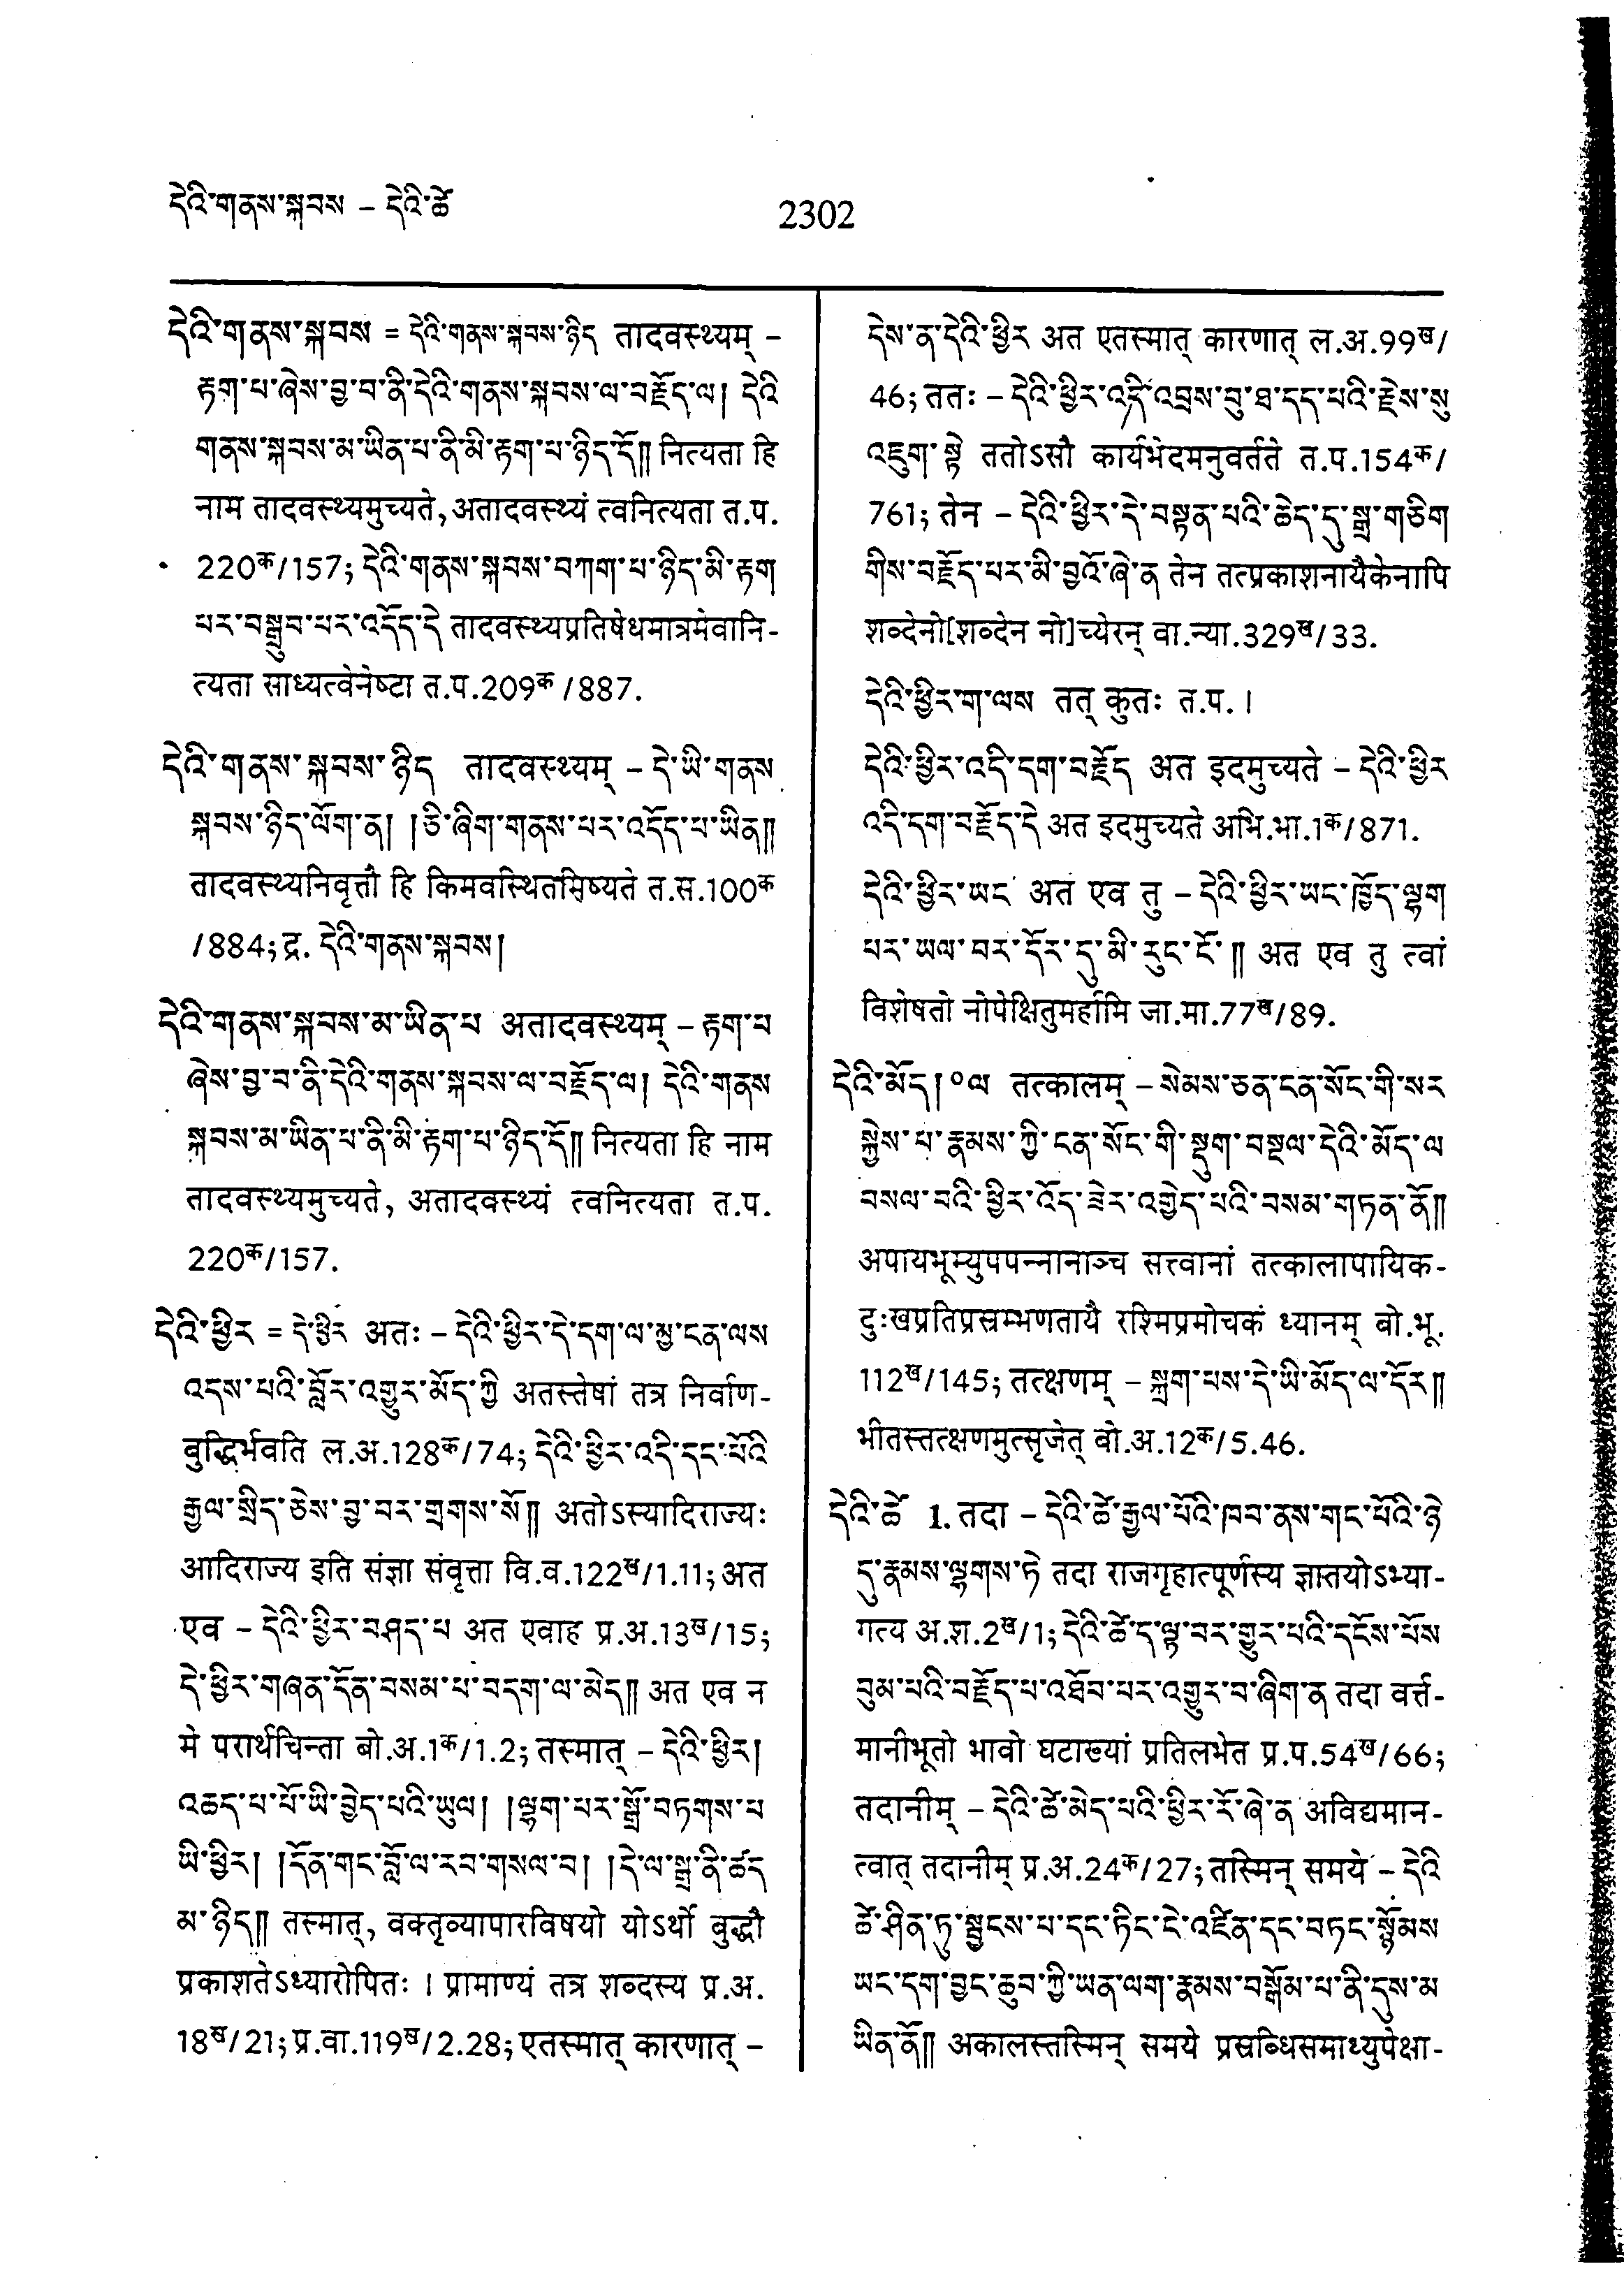 དེའི་གནས་སྐབས – དེའི་ཚེ
2302
དེའི་གནས་སྐབས = དེའི་གནས་སྐབས་ཉིད तादवस्थ्यम् –
རྟག་པ་ཞེས་བྱ་བ་ནི་དེའི་གནས་སྐབས་ལ་བརྗོད་ལ། དེའི
གནས་སྐབས་མ་ཡིན་པ་ནི་མི་རྟག་པ་ཉིད་དོ༎ नित्यता हि
नाम तादवस्थ्यमुच्यते, अतादवस्थ्यं त्वनित्यता त.प.
220क/157; དེའི་གནས་སྐབས་བཀག་པ་ཉིད་མི་རྟག
པར་བསྒྲུབ་པར་འདོད་དེ तादवस्थ्यप्रतिषेधमात्रमेवानि-
त्यता साध्यत्वेनेष्टा त.प.209क/887.
དེའི་གནས་སྐབས་ཉིད तादवस्थ्यम् – དེ་ཡི་གནས
སྐབས་ཉིད་ལོག་ན། །ཅི་ཞིག་གནས་པར་འདོད་པ་ཡིན༎
तादवस्थ्यनिवृत्तौ हि किमवस्थितमिष्यते त.स.100क
/884; द्र. དེའི་གནས་སྐབས།
དེའི་གནས་སྐབས་མ་ཡིན་པ अतादवस्थ्यम् – རྟག་པ
ཞེས་བྱ་བ་ནི་དེའི་གནས་སྐབས་ལ་བརྗོད་ལ། དེའི་གནས
སྐབས་མ་ཡིན་པ་ནི་མི་རྟག་པ་ཉིད་དོ༎ नित्यता हि नाम
तादवस्थ्यमुच्यते, अतादवस्थ्यं त्वनित्यता त.प.
220क/157.
དེའི་ཕྱིར = དེ་ཕྱིར अतः – དེའི་ཕྱིར་དེ་དག་ལ་མྱ་ངན་ལས
འདས་པའི་བློར་འགྱུར་མོད་ཀྱི अतस्तेषां तत्र निर्वाण-
बुद्धिर्भवति ल.अ.128क/74; དེའི་ཕྱིར་འདི་དང་པོའི
རྒྱལ་སྲིད་ཅེས་བྱ་བར་གྲགས་སོ༎ अतोऽस्यादिराज्यः
आदिराज्य इति संज्ञा संवृत्ता वि.व.122ख/1.11; अत
एव – དེའི་ཕྱིར་བཤད་པ अत एवाह प्र.अ.13ख/15;
དེ་ཕྱིར་གཞན་དོན་བསམ་པ་བདག་ལ་མེད༎ अत एव न
मे परार्थचिन्ता बो.अ.1क/1.2; तस्मात् – དེའི་ཕྱིར།
འཆད་པ་པོ་ཡི་བྱེད་པའི་ཡུལ། །ལྷག་པར་སྒྲོ་བཏགས་པ
ཡི་ཕྱིར། །དོན་གང་བློ་ལ་རབ་གསལ་བ། །དེ་ལ་སྒྲ་ནི་ཚད
མ་ཉིད༎ तस्मात्, वक्तृव्यापारविषयो योऽर्थो बुद्धौ
प्रकाशतेऽध्यारोपितः । प्रामाण्यं तत्र शब्दस्य प्र.अ.
18ख/21; प्र.वा.119ख/2.28; एतस्मात् कारणात् –
དེས་ན་དེའི་ཕྱིར अत एतस्मात् कारणात् ल.अ.99ख/
46; ततः – དེའི་ཕྱིར་འདི་འབྲས་བུ་ཐ་དད་པའི་རྗེས་སུ
འཇུག་སྟེ ततोऽसौ कार्यभेदमनुवर्तते त.प.154क/
761; तेन – དེའི་ཕྱིར་དེ་བསྟན་པའི་ཆེད་དུ་སྒྲ་གཅིག
གིས་བརྗོད་པར་མི་བྱའོ་ཞེ་ན तेन तत्प्रकाशनायैकेनापि
शब्देनो[शब्देन नो]च्येरन् वा.न्या.329ख/33.
དེའི་ཕྱིར་ག་ལས तत् कुतः त.प. ।
དེའི་ཕྱིར་འདི་དག་བརྗོད अत इदमुच्यते – དེའི་ཕྱིར
འདི་དག་བརྗོད་དེ अत इदमुच्यते अभि.भा.1क/871.
དེའི་ཕྱིར་ཡང अत एव तु – དེའི་ཕྱིར་ཡང་ཁྱོད་ལྷག
པར་ཡལ་བར་དོར་དུ་མི་རུང་ངོ་༎ अत एव तु त्वां
विशेषतो नोपेक्षितुमर्हामि जा.मा.77ख/89.
དེའི་མོད། ॰ལ तत्कालम् – སེམས་ཅན་ངན་སོང་གི་སར
སྐྱེས་པ་རྣམས་ཀྱི་ངན་སོང་གི་སྡུག་བསྔལ་དེའི་མོད་ལ
བསལ་བའི་ཕྱིར་འོད་ཟེར་འགྱེད་པའི་བསམ་གཏན་ནོ༎
अपायभूम्युपपन्नानाञ्च सत्त्वानां तत्कालापायिक-
दुःखप्रतिप्रस्रम्भणतायै रश्मिप्रमोचकं ध्यानम् बो.भू.
112ख/145; तत्क्षणम् – སྐྲག་པས་དེ་ཡི་མོད་ལ་དོར༎
भीतस्तत्क्षणमुत्सृजेत् बो.अ.12क/5.46.
དེའི་ཚེ 1. तदा – དེའི་ཚེ་རྒྱལ་པོའི་ཁབ་ནས་གང་པོའི་ཉེ
དུ་རྣམས་ལྷགས་ཏེ तदा राजगृहात्पूर्णस्य ज्ञातयोऽभ्या-
गत्य अ.श.2ख/1; དེའི་ཚེ་ད་ལྟ་བར་གྱུར་པའི་དངོས་པོས
བུམ་པའི་བརྗོད་པ་འཐོབ་པར་འགྱུར་བ་ཞིག་ན तदा वर्त्त-
मानीभूतो भावो घटाख्यां प्रतिलभेत प्र.प.54ख/66;
तदानीम् – དེའི་ཚེ་མེད་པའི་ཕྱིར་རོ་ཞེ་ན अविद्यमान-
त्वात् तदानीम् प्र.अ.24क/27; तस्मिन् समये – དེའི
ཚེ་ཤིན་ཏུ་སྦྱངས་པ་དང་ཏིང་ངེ་འཛིན་དང་བཏང་སྙོམས
ཡང་དག་བྱང་ཆུབ་ཀྱི་ཡན་ལག་རྣམས་བསྒོམ་པ་ནི་དུས་མ
ཡིན་ནོ༎ अकालस्तस्मिन् समये प्रस्रब्धिसमाध्युपेक्षा-